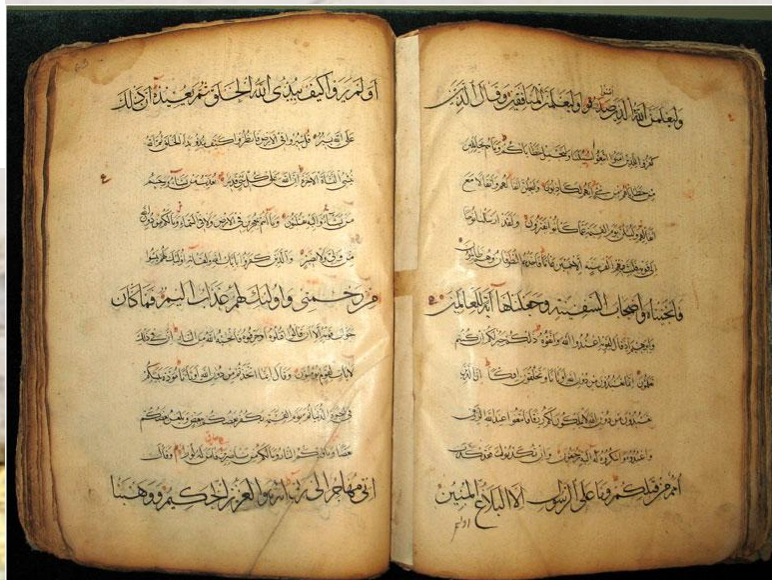 وليعلمن الله الذين صدقوا وليعلمن المنافقين وقال الذين
كفروا للذين امنوا اتبعوا سبيلنا ولنحمل خطاياكم وما هم بحاملين
من خطاياهم من شيء انهم لكاذبون وليحملن اثقالهم واثقالا مع
اثقالهم وليسئلن يوم القيمة عما كانوا يفترون ولقد ارسلنا نوحا
الى قومه فلبث فيهم الف سنة الا خمسين عاما فاخذهم الطوفان وهم ظالمون
فانجيناه واصحاب السفينة وجعلناها آية للعالمين
وابرهيم اذ قال لقومه اعبدوا الله واتقوه ذلكم خير لكم ان كنتم
تعلمون انما تعبدون من دون الله اوثانا وتخلقون افكا ان الذين
تعبدون من دون الله لا يملكون لكم رزقا فابتغوا عند الله الرزق
واعبدوه واشكروا له اليه ترجعون وان تكذبوا فقد كذب
امم من قبلكم وما على الرسول الا البلاغ المبين
اولم
اولم يروا كيف يبدئ الله الخلق ثم يعيده ان ذلك
على الله يسير قل سيروا في الارض فانظروا كيف بدا الخلق ثم الله
ينشئ النشاة الاخرة ان الله على كل شيء قدير يعذب من يشاء ويرحم
من يشاء واليه تقلبون وما انتم بمعجزين في الارض ولا في السماء وما لكم من دون الله
من ولي ولا نصير والذين كفروا بايات الله ولقائه اولئك يئسوا
من رحمتي واولئك لهم عذاب اليم فما كان
جواب قومه الا ان قالوا اقتلوه او حرقوه فانجيه الله من النار ان في ذلك
لايات لقوم يؤمنون وقال انما اتخذتم من دون الله اوثانا مودة بينكم
في الحيوة الدنيا ثم يوم القيمة يكفر بعضكم ببعض ويلعن بعضكم
بعضا وماويكم النار وما لكم من ناصرين فامن له لوط وقال
اني مهاجر الى ربي انه هو العزيز الحكيم ووهبنا